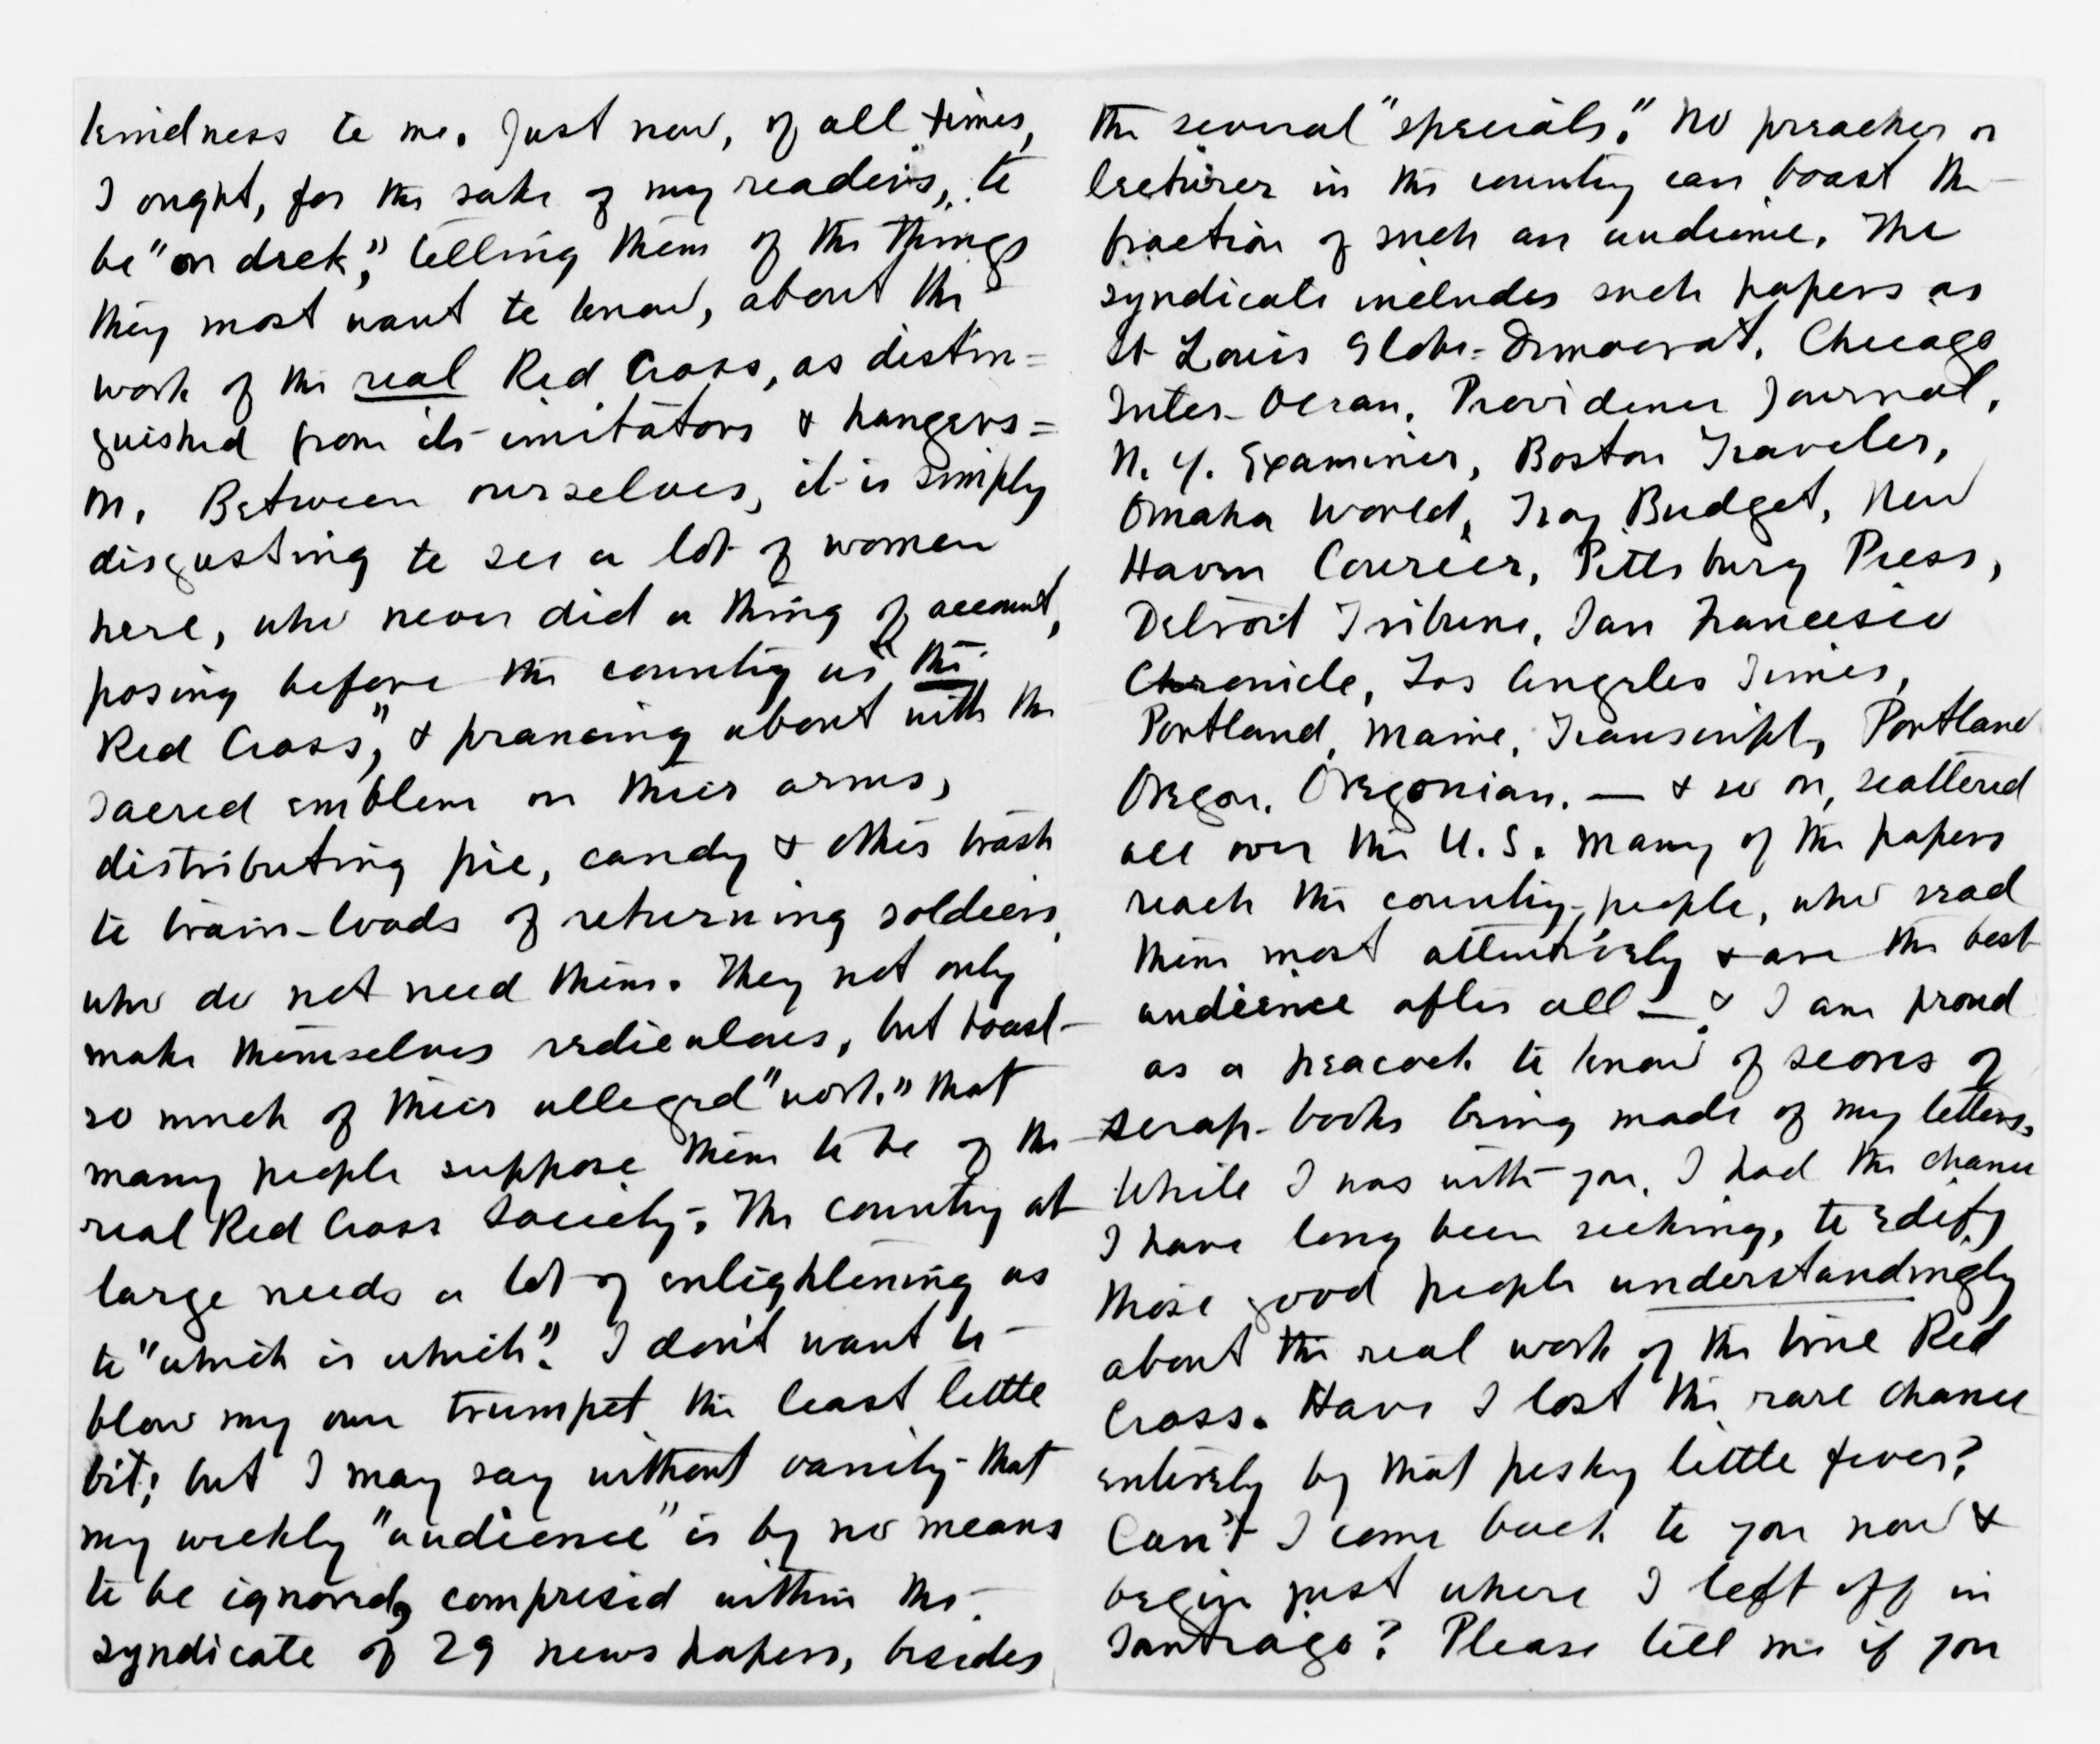 kindness to me. Just now, of all times,
I ought, for the sake of my readers, to
be "on deck," telling them of the things
they most want to know, about the
work of the real Red Cross, as distin=
guished from its imitators & hangers=
on. Between ourselves, it is simply
disgusting to see a lot of women
here, who never did a thing of account,
posing before the country as "the
Red Cross," & prancing about with the
sacred emblem on their arms,
distributing pie, candy & other trash
to train-loads of returning soldiers,
who do not need them. They not only
make themselves rediculous, but boast
so much of their alleged "work," that
many people suppose them to be of the
real Red Cross Society. The country at
large needs a lot of enlightening as
to "which is which". I don't want to
blow my own trumpet the least little
bit; but I may say without vanity that
my weekly "audience" is by no means
to be ignored, comprised within the
syndicate of 29 newspapers, besides
the several "specials." No preacher or
lecturer in the country can boast the
fraction of such an audience. The
syndicate includes such papers as
St Louis Globe-Democrat, Chicago
Inter-Ocean, Providence Journal,
N. Y. Examiner, Boston Traveler,
Omaha World, Troy Budget, New
Haven Courier, Pittsburg Press,
Detroit Tribune, San Francisco
Chronicle, Los Angeles Times,
Portland, Maine, Transcript, Portland
Oregon, Oregonian. — & so on, scattered
all over the U.S. Many of the papers
reach the country-people, who read
them most attentively & are the best
audience after all — & I am proud
as a peacock to know of scores of
scrap-books being made of my letters.
While I was with you, I had the chance
I have long been seeking, to edify
those good people understandingly
about the real work of the true Red
Cross. Have I lost the rare chance
entirely by that pesky little fever?
Can't I come back to you now &
begin just where I left off in
Santiago? Please tell me if you